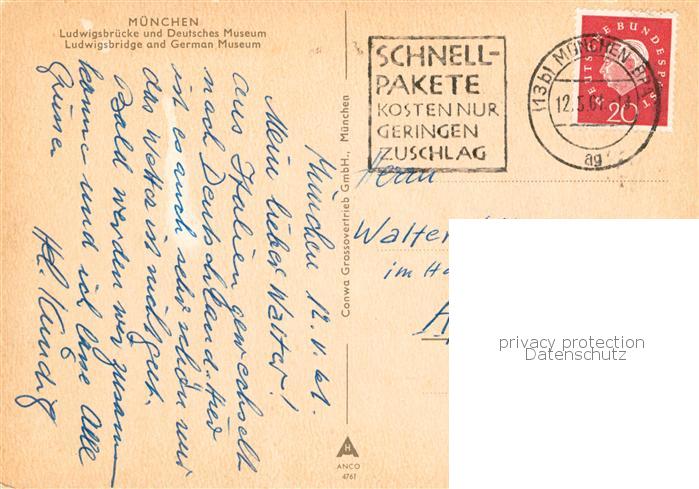 MÜNCHEN
Ludwigsbrücke und Deutsches Museum
Ludwigsbridge and German Museum
München 12.V.61.
Mein lieber Walter!
Aus Italien gewechselt
nach Deutschland. Hier
ist es auch sehr schön nur
das Wetter ist nicht gut.
Bald werden wir zusam-
komme und ich Ihne Alle
Grüsse
Conwa Grossovertrieb GmbH., München
ANCO
4761
SCHNELL-
PAKETE
KOSTEN NUR
GERINGEN
ZUSCHLAG
(13b) MÜNCHEN
12.5.61
ag
DEUTSCHE BUNDESPOST
20
Herrn
Walter
im
privacy protection
Datenschutz